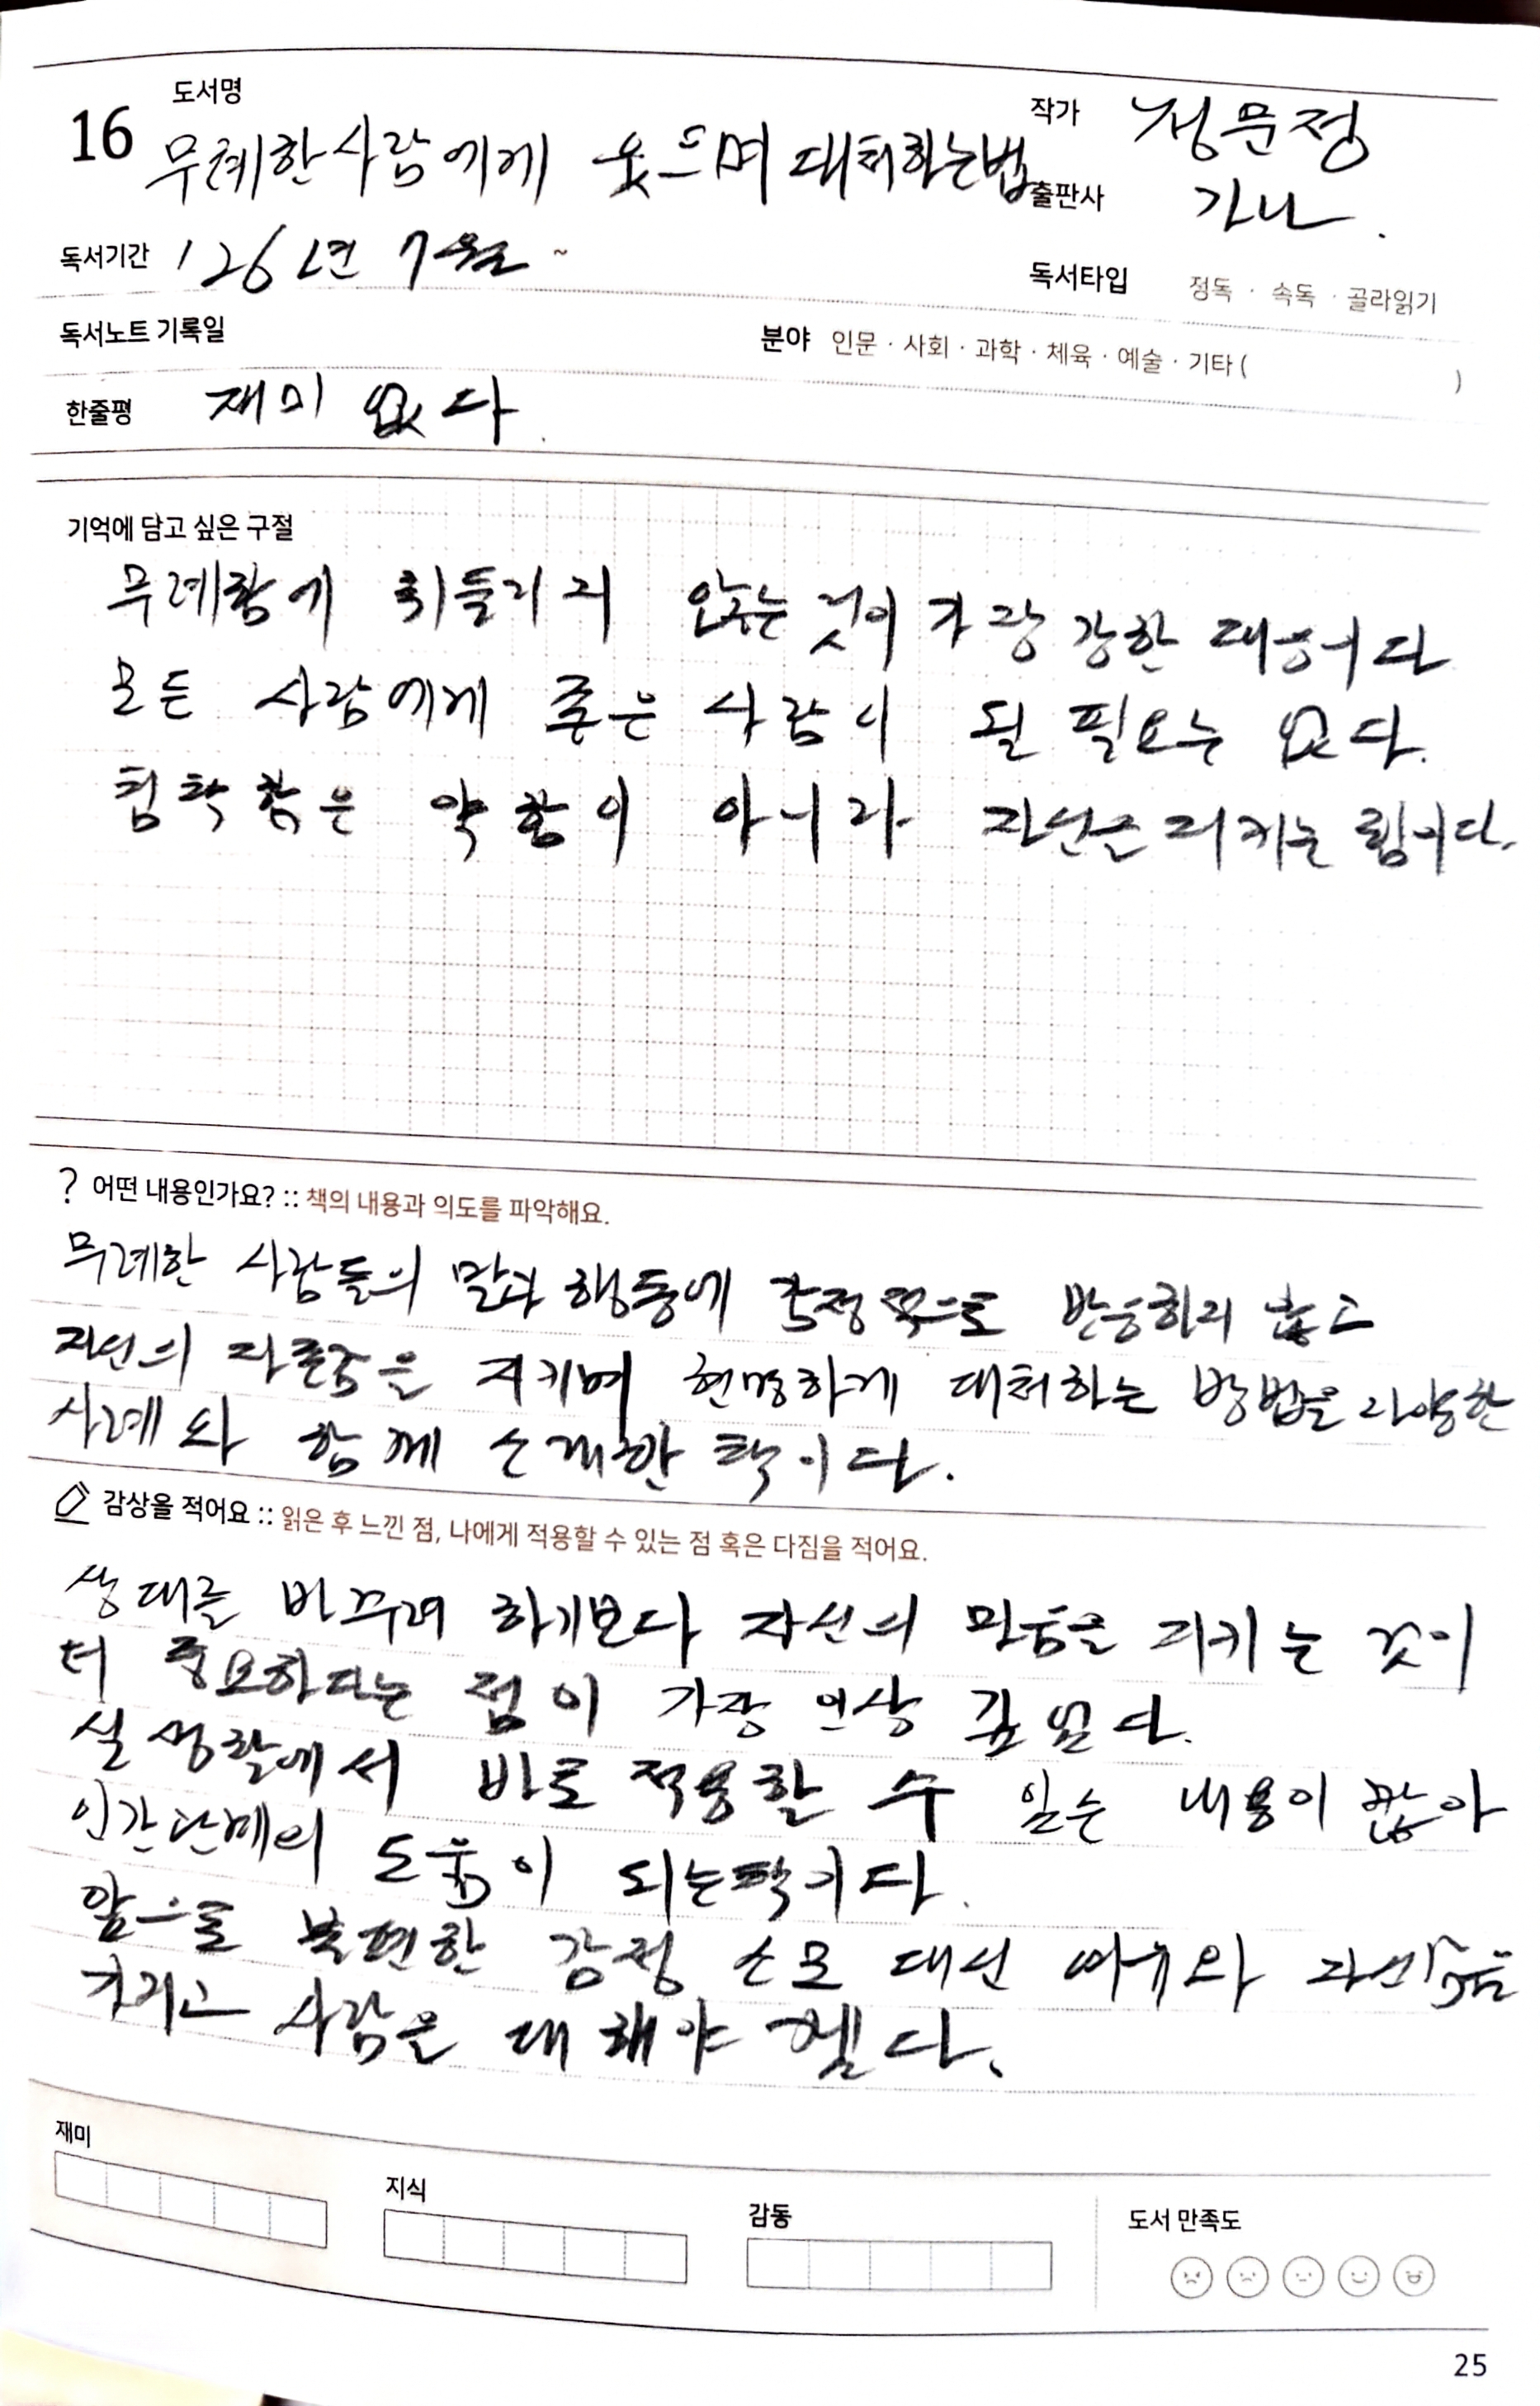 16
도서명
무례한사람에게 웃으며 대처하는법
작가 정문정
출판사 가나.
독서기간 '26년 7월 ~
독서타입 정독 · 속독 · 골라읽기
독서노트 기록일
분야 인문 · 사회 · 과학 · 체육 · 예술 · 기타 ( )
한줄평 재미 없다.
기억에 담고 싶은 구절
무례함에 휘둘리지 않는 것이 가장 강한 대응이다
모든 사람에게 좋은 사람이 될 필요는 없다.
침착함은 약함이 아니라 자신을 지키는 힘이다.
? 어떤 내용인가요? :: 책의 내용과 의도를 파악해요.
무례한 사람들의 말과 행동에 감정적으로 반응하지 않고
자신의 자존감을 지키며 현명하게 대처하는 방법을 다양한
사례와 함께 소개한 책이다.
감상을 적어요 :: 읽은 후 느낀 점, 나에게 적용할 수 있는 점 혹은 다짐을 적어요.
상대를 바꾸려 하기보다 자신의 마음을 지키는 것이
더 중요하다는 점이 가장 인상 깊었다.
실생활에서 바로 적용할 수 있는 내용이 많아
인간관계의 도움이 되는책이다.
앞으로 불편한 감정 소모 대신 여유와 자신감을
가지고 사람을 대해야 겠다.
재미
지식
감동
도서 만족도
25